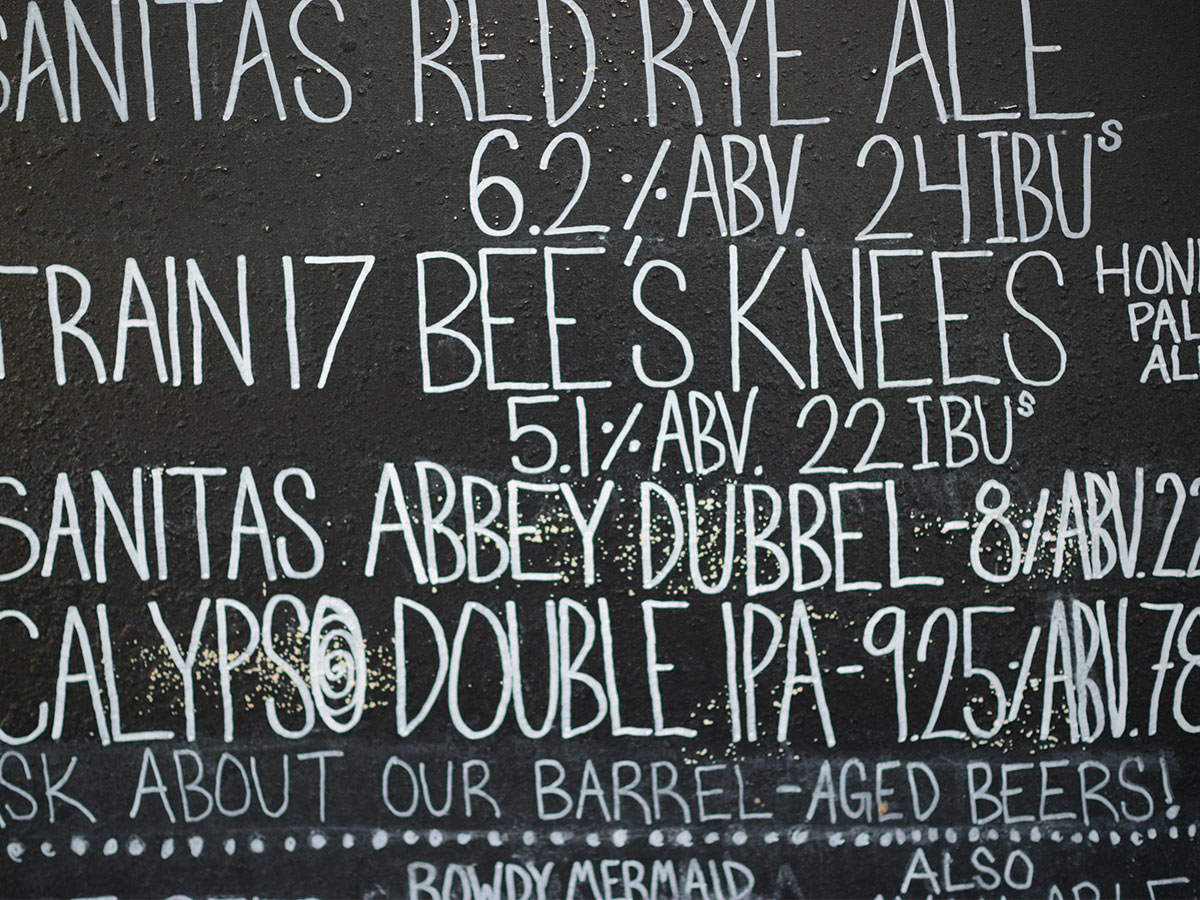 SANITAS RED RYE ALE
6.2% ABV. 24 IBUs
TRAIN 17 BEE'S KNEES
HON
PAL
AL
5.1% ABV. 22 IBUs
SANITAS ABBEY DUBBEL - 8% ABV. 22
CALYPSO DOUBLE IPA - 9.25% ABV. 78
ASK ABOUT OUR BARREL-AGED BEERS!
ROWDY MERMAID
ALSO